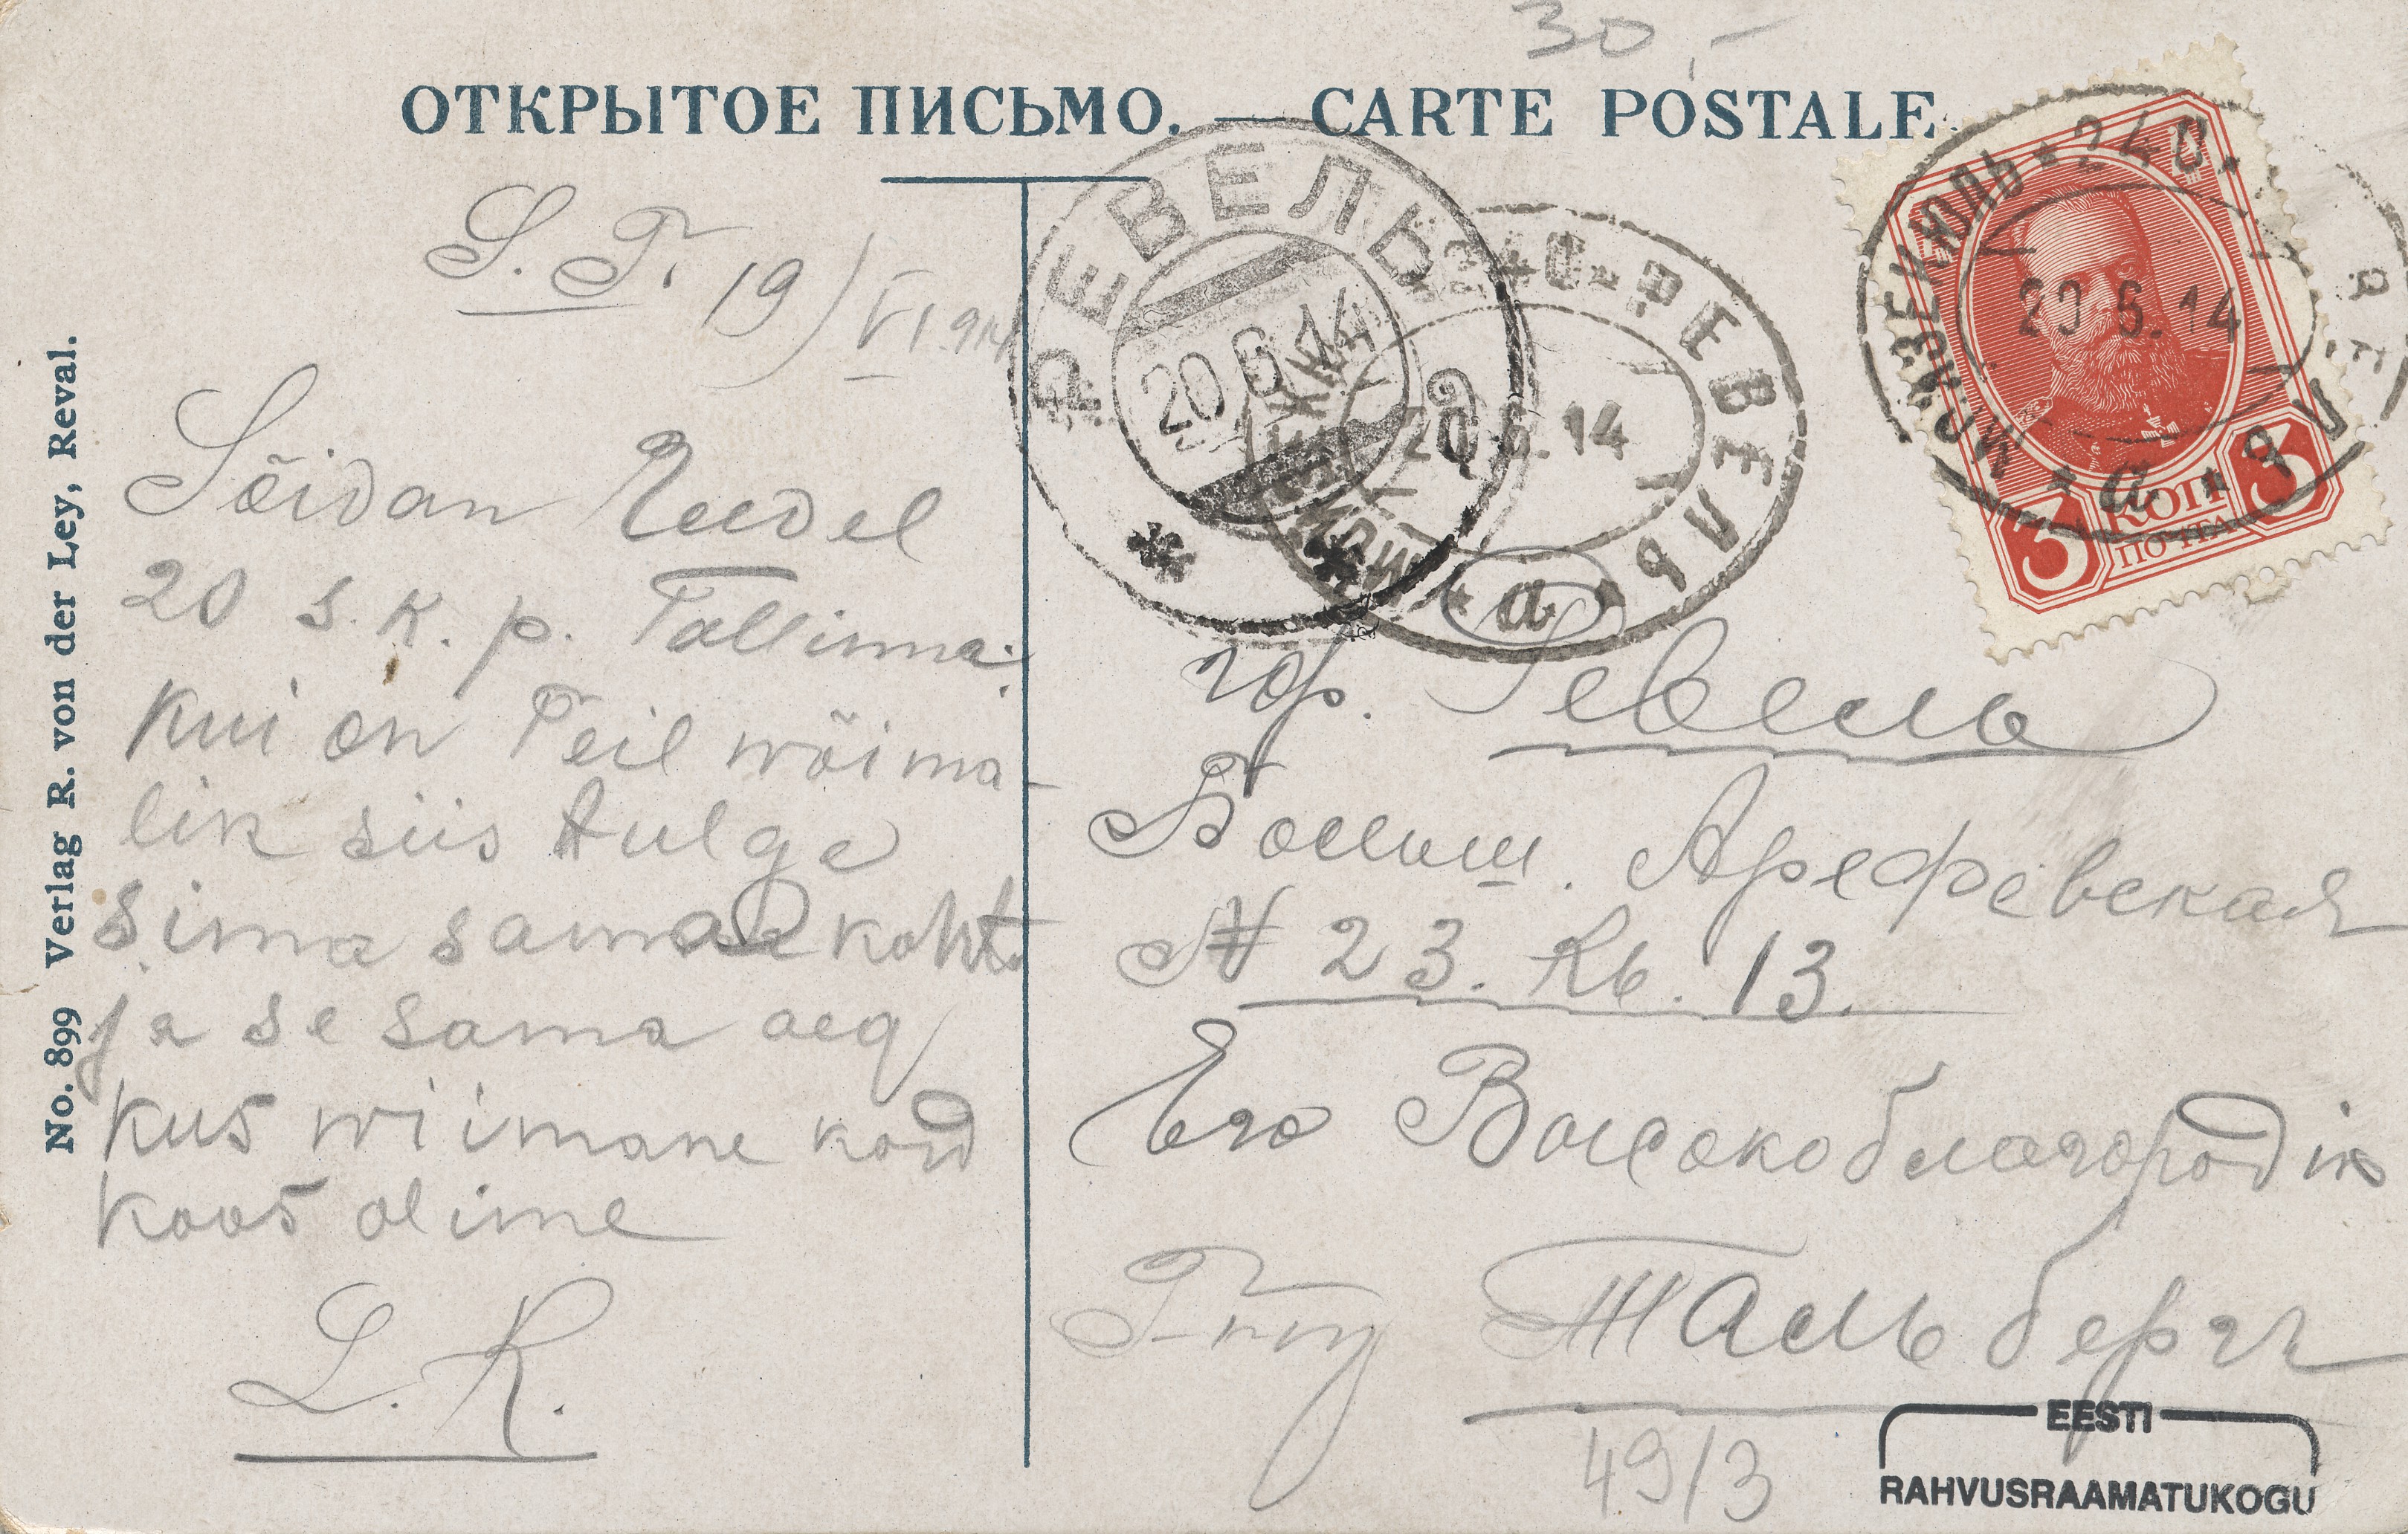 30,-
ОТКРЫТОЕ ПИСЬМО. — CARTE POSTALE.
S. T. 19/VI 914
Sõidan Reedel
20 s. k. p. Tallinna.
kui on Teil wõima-
lik siis tulge
sinna samma kohta
ja se sama aeg
kus wiimane kord
koos olime
L. R.
No. 899 Verlag R. von der Ley, Reval.
РЕВЕЛЬ
20 6 14
МОЙЗЕКЮЛЬ • 240 • РЕВЕЛЬ
20 6. 14
а
МОЙЗЕКЮЛЬ • 240 • РЕВЕЛЬ
20 6. 14
а
3 КОП 3
ПОЧТА
гор. Ревель
Больш. Арефевская
N 23. Кв. 13.
Его Высокоблагородію
Г-ну Тальбергъ
49/3
EESTI
RAHVUSRAAMATUKOGU